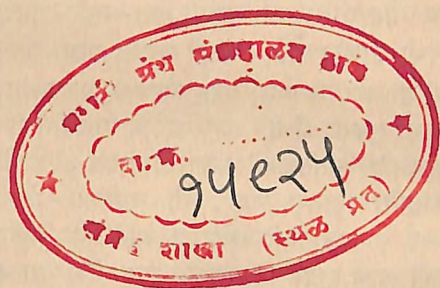 मराठी ग्रंथ संग्रहालय ठाणे
दा.क्र. ............
१५९२५
संग्रह शाखा (स्थळ प्रत)